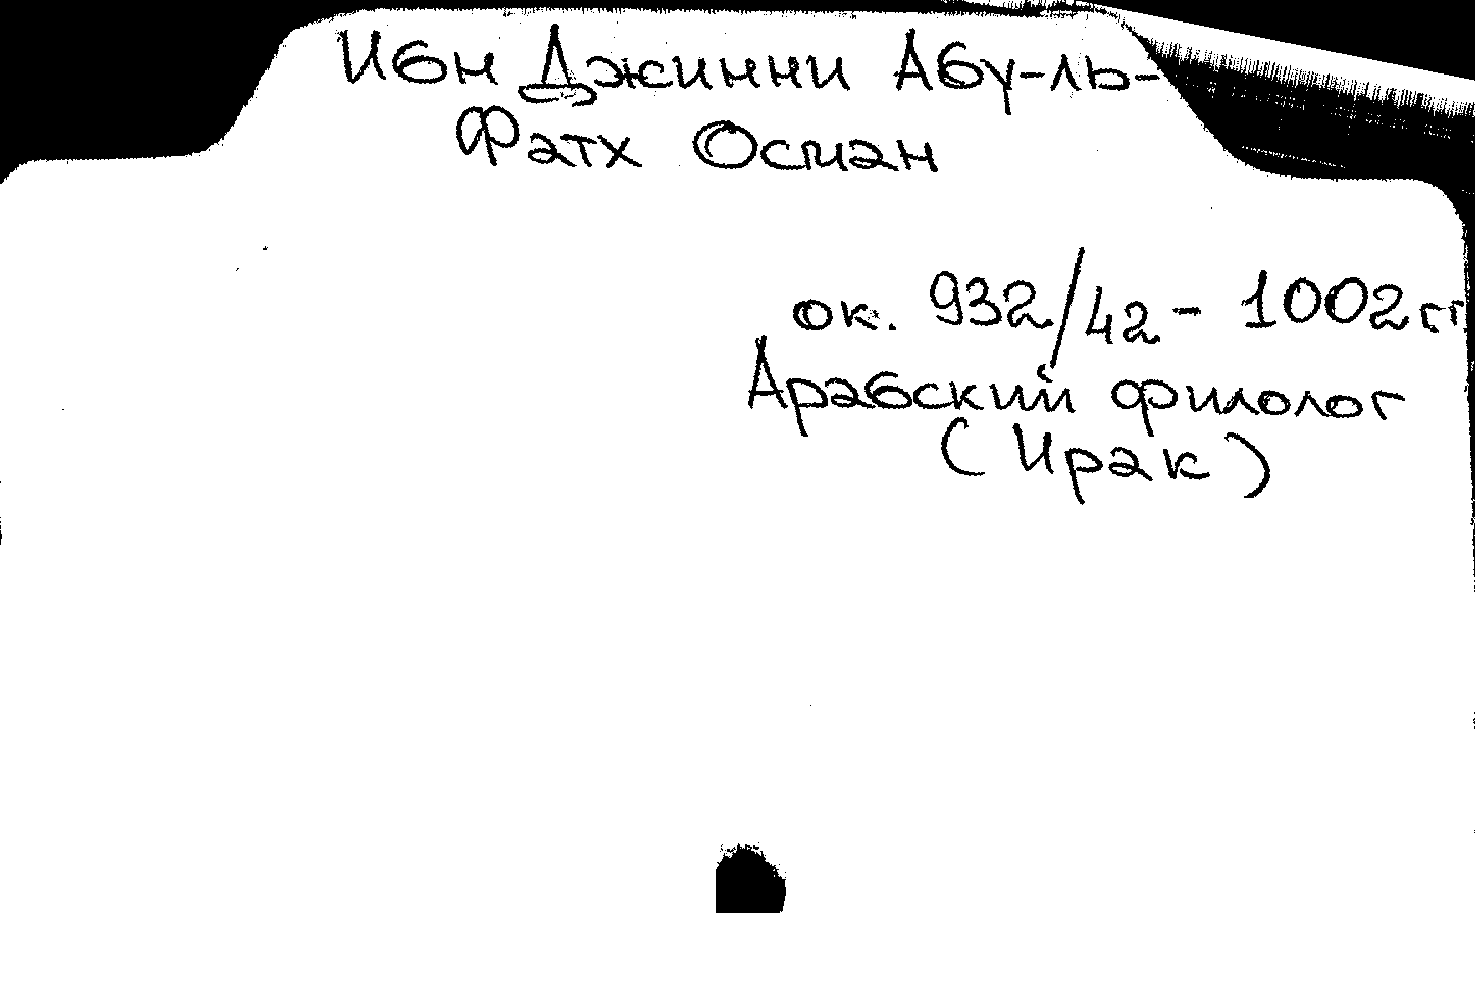 Ибн Джинни Абу-ль-
Фатх Осман
ок. 932/42 - 1002 гг
Арабский филолог
(Ирак)